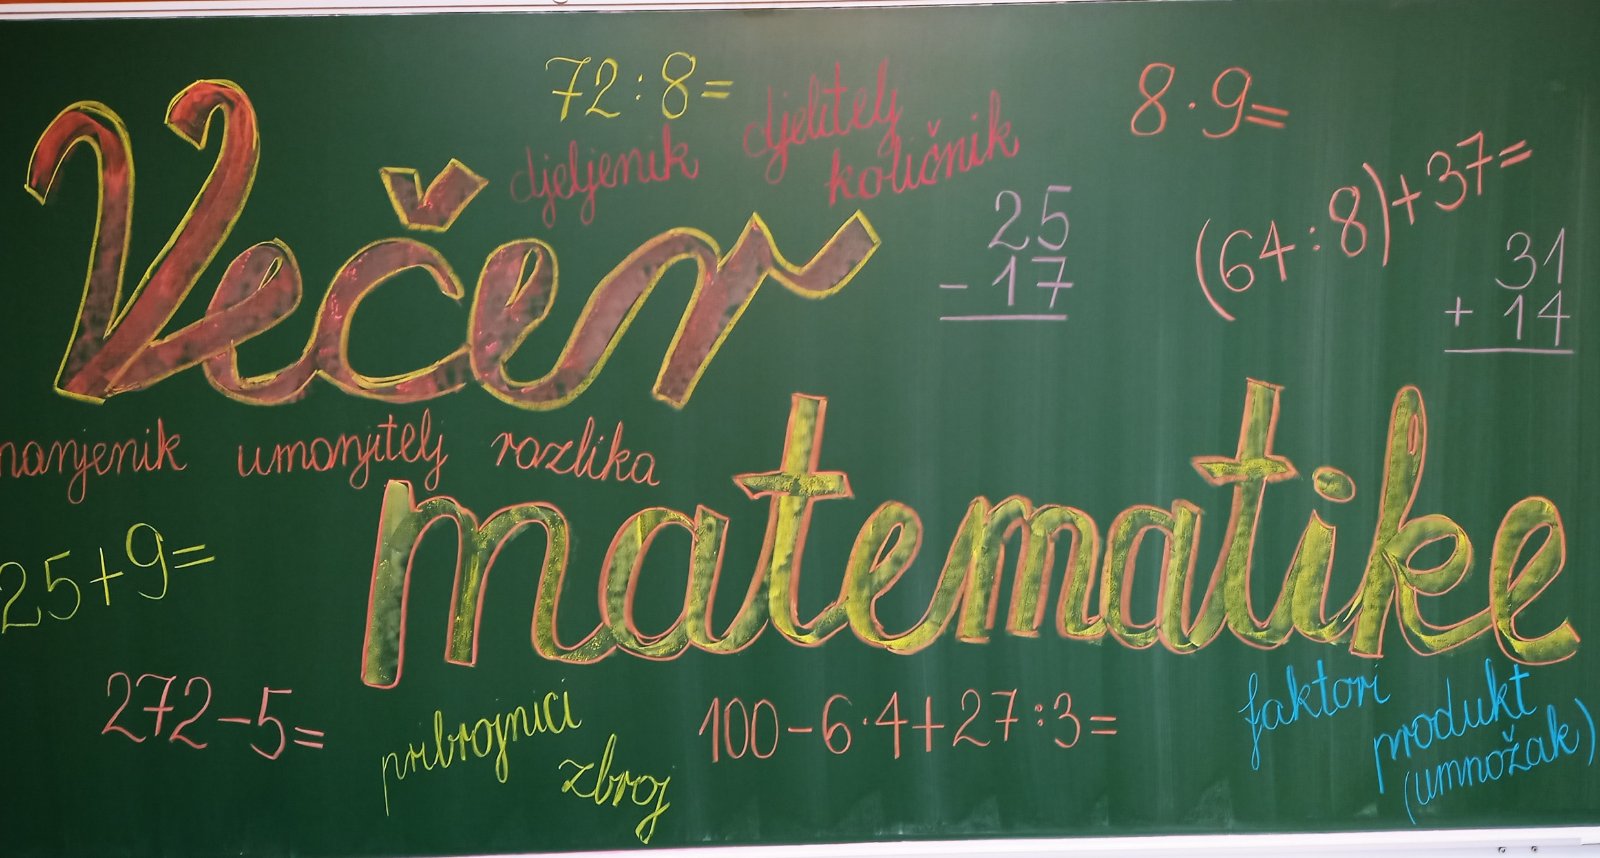 72:8=
djeljenik djelitelj
količnik
8·9=
(64:8)+37=
Večer
25
- 17
31
+ 14
umanjitelj razlika
matematike
25+9=
272-5=
pribrojnici
zbroj
100-6·4+27:3=
faktori
produkt
(umnožak)